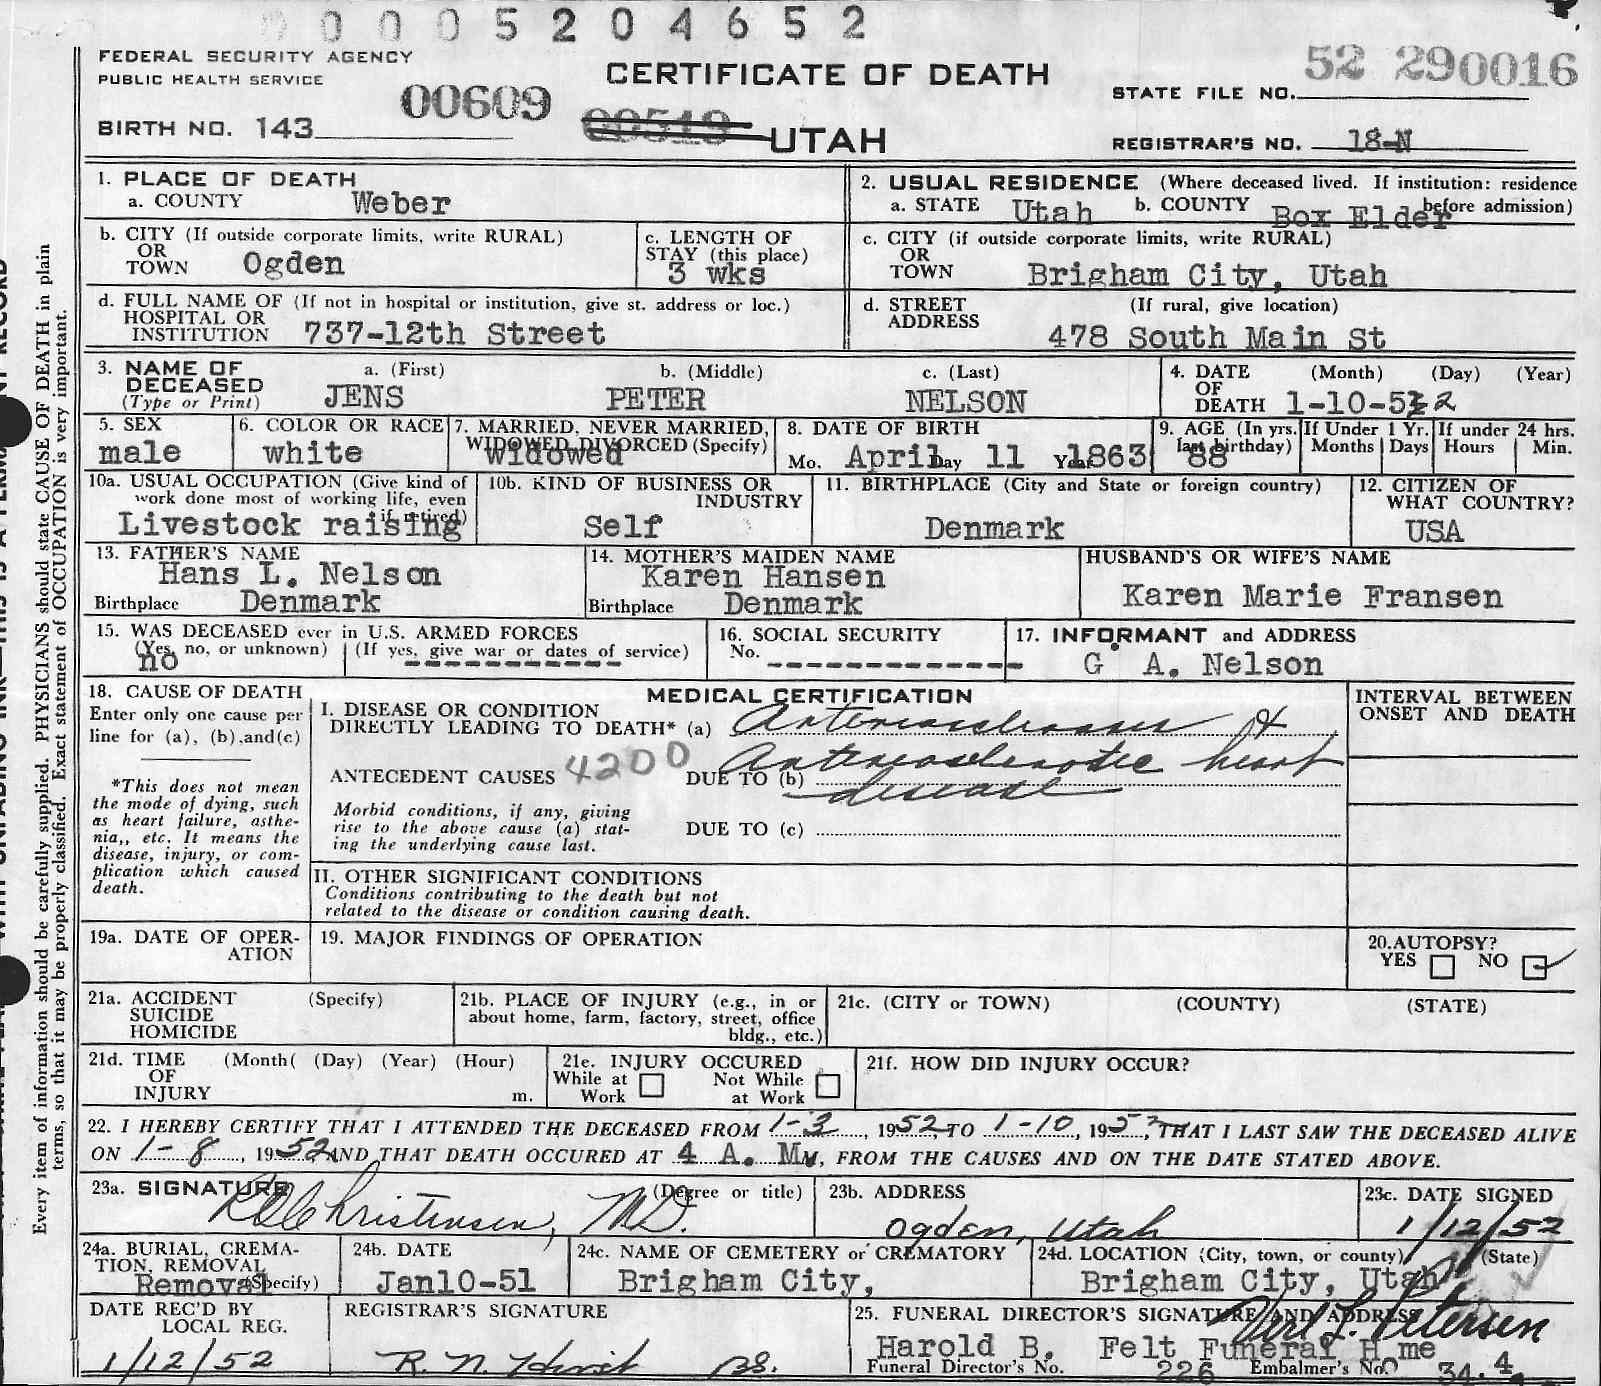 0 0 0 0 5 2 0 4 6 5 2
FEDERAL SECURITY AGENCY
PUBLIC HEALTH SERVICE
CERTIFICATE OF DEATH
52 290016
STATE FILE NO.
00609
BIRTH NO. 143
00519 UTAH
REGISTRAR'S NO. 18-N
1. PLACE OF DEATH
a. COUNTY Weber
2. USUAL RESIDENCE (Where deceased lived. If institution: residence before admission)
a. STATE Utah b. COUNTY Box Elder
b. CITY (If outside corporate limits, write RURAL)
OR
TOWN Ogden
c. LENGTH OF
STAY (this place)
3 wks
c. CITY (if outside corporate limits, write RURAL)
OR
TOWN Brigham City, Utah
d. FULL NAME OF (If not in hospital or institution, give st. address or loc.)
HOSPITAL OR
INSTITUTION 737-12th Street
d. STREET (If rural, give location)
ADDRESS
478 South Main St
3. NAME OF
DECEASED
(Type or Print)
a. (First) b. (Middle) c. (Last)
JENS PETER NELSON
4. DATE (Month) (Day) (Year)
OF
DEATH 1-10-52
5. SEX
male
6. COLOR OR RACE
white
7. MARRIED, NEVER MARRIED,
WIDOWED DIVORCED (Specify)
Widowed
8. DATE OF BIRTH
Mo. April Day 11 Year 1863
9. AGE (In yrs. last birthday)
88
If Under 1 Yr.
Months Days
If under 24 hrs.
Hours Min.
10a. USUAL OCCUPATION (Give kind of
work done most of working life, even
if retired)
Livestock raising
10b. KIND OF BUSINESS OR
INDUSTRY
Self
11. BIRTHPLACE (City and State or foreign country)
Denmark
12. CITIZEN OF
WHAT COUNTRY?
USA
13. FATHER'S NAME
Hans L. Nelson
Birthplace Denmark
14. MOTHER'S MAIDEN NAME
Karen Hansen
Birthplace Denmark
HUSBAND'S OR WIFE'S NAME
Karen Marie Fransen
15. WAS DECEASED ever in U.S. ARMED FORCES
(Yes, no, or unknown) (If yes, give war or dates of service)
no ------------
16. SOCIAL SECURITY
No. --------------
17. INFORMANT and ADDRESS
G. A. Nelson
18. CAUSE OF DEATH
Enter only one cause per
line for (a), (b), and (c)
*This does not mean
the mode of dying, such
as heart failure, asthe-
nia,, etc. It means the
disease, injury, or com-
plication which caused
death.
MEDICAL CERTIFICATION
I. DISEASE OR CONDITION
DIRECTLY LEADING TO DEATH* (a) Arteriosclerosis &
Arteriosclerotic heart
ANTECEDENT CAUSES 4200 DUE TO (b) disease
Morbid conditions, if any, giving
rise to the above cause (a) stat-
ing the underlying cause last.
DUE TO (c)
INTERVAL BETWEEN
ONSET AND DEATH
II. OTHER SIGNIFICANT CONDITIONS
Conditions contributing to the death but not
related to the disease or condition causing death.
19a. DATE OF OPER-
ATION
19. MAJOR FINDINGS OF OPERATION
20. AUTOPSY?
YES NO
21a. ACCIDENT (Specify)
SUICIDE
HOMICIDE
21b. PLACE OF INJURY (e.g., in or
about home, farm, factory, street, office
bldg., etc.)
21c. (CITY or TOWN) (COUNTY) (STATE)
21d. TIME (Month( (Day) (Year) (Hour)
OF
INJURY m.
21e. INJURY OCCURED
While at Work Not While at Work
21f. HOW DID INJURY OCCUR?
22. I HEREBY CERTIFY THAT I ATTENDED THE DECEASED FROM 1-3, 1952, TO 1-10, 1952, THAT I LAST SAW THE DECEASED ALIVE
ON 1-8, 1952 AND THAT DEATH OCCURED AT 4 A. M., FROM THE CAUSES AND ON THE DATE STATED ABOVE.
23a. SIGNATURE (Degree or title)
Christensen, M.D.
23b. ADDRESS
Ogden, Utah
23c. DATE SIGNED
1/12/52
24a. BURIAL, CREMA-
TION, REMOVAL
(Specify)
Removal
24b. DATE
Jan10-51
24c. NAME OF CEMETERY or CREMATORY
Brigham City,
24d. LOCATION (City, town, or county) (State)
Brigham City, Utah
DATE REC'D BY
LOCAL REG.
1/12/52
REGISTRAR'S SIGNATURE
R. N. Hirst
25. FUNERAL DIRECTOR'S SIGNATURE AND ADDRESS
Petersen
Harold B. Felt Funeral H me
Funeral Director's No. 226 Embalmer's No. 34
Every item of information should be carefully supplied. PHYSICIANS should state CAUSE OF DEATH in plain
terms, so that it may be properly classified. Exact statement of OCCUPATION is very important.